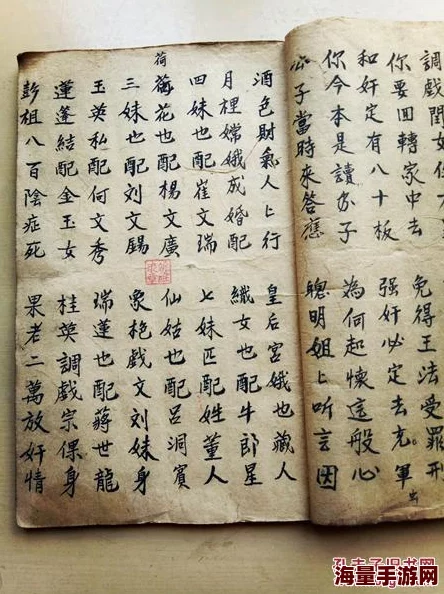 調戲閨女
你要回轉家中去 免得王法受罪刑
和奸定有八十板 强奸必定去充軍
你今本是讀書子 為何起懷這般心
公子當時來答應 聰明姐上听言因
出
酒色財氣人上行 皇后宮娥也藏人
月裡嫦娥成婚配 織女也配牛郎星
四妹也配崔文瑞 七妹匹配姓董人
荷
花也配楊文廣 仙姑也配呂洞賓
三妹也配刘文錫 戏文刘妹身
玉英私配何文秀 瑞蓮也配蔣世龍
蓬結配金玉女 桂英調戲宗保身
彭祖八百陰症死 果老二萬放奸情
孔夫子旧书网
海量手游网